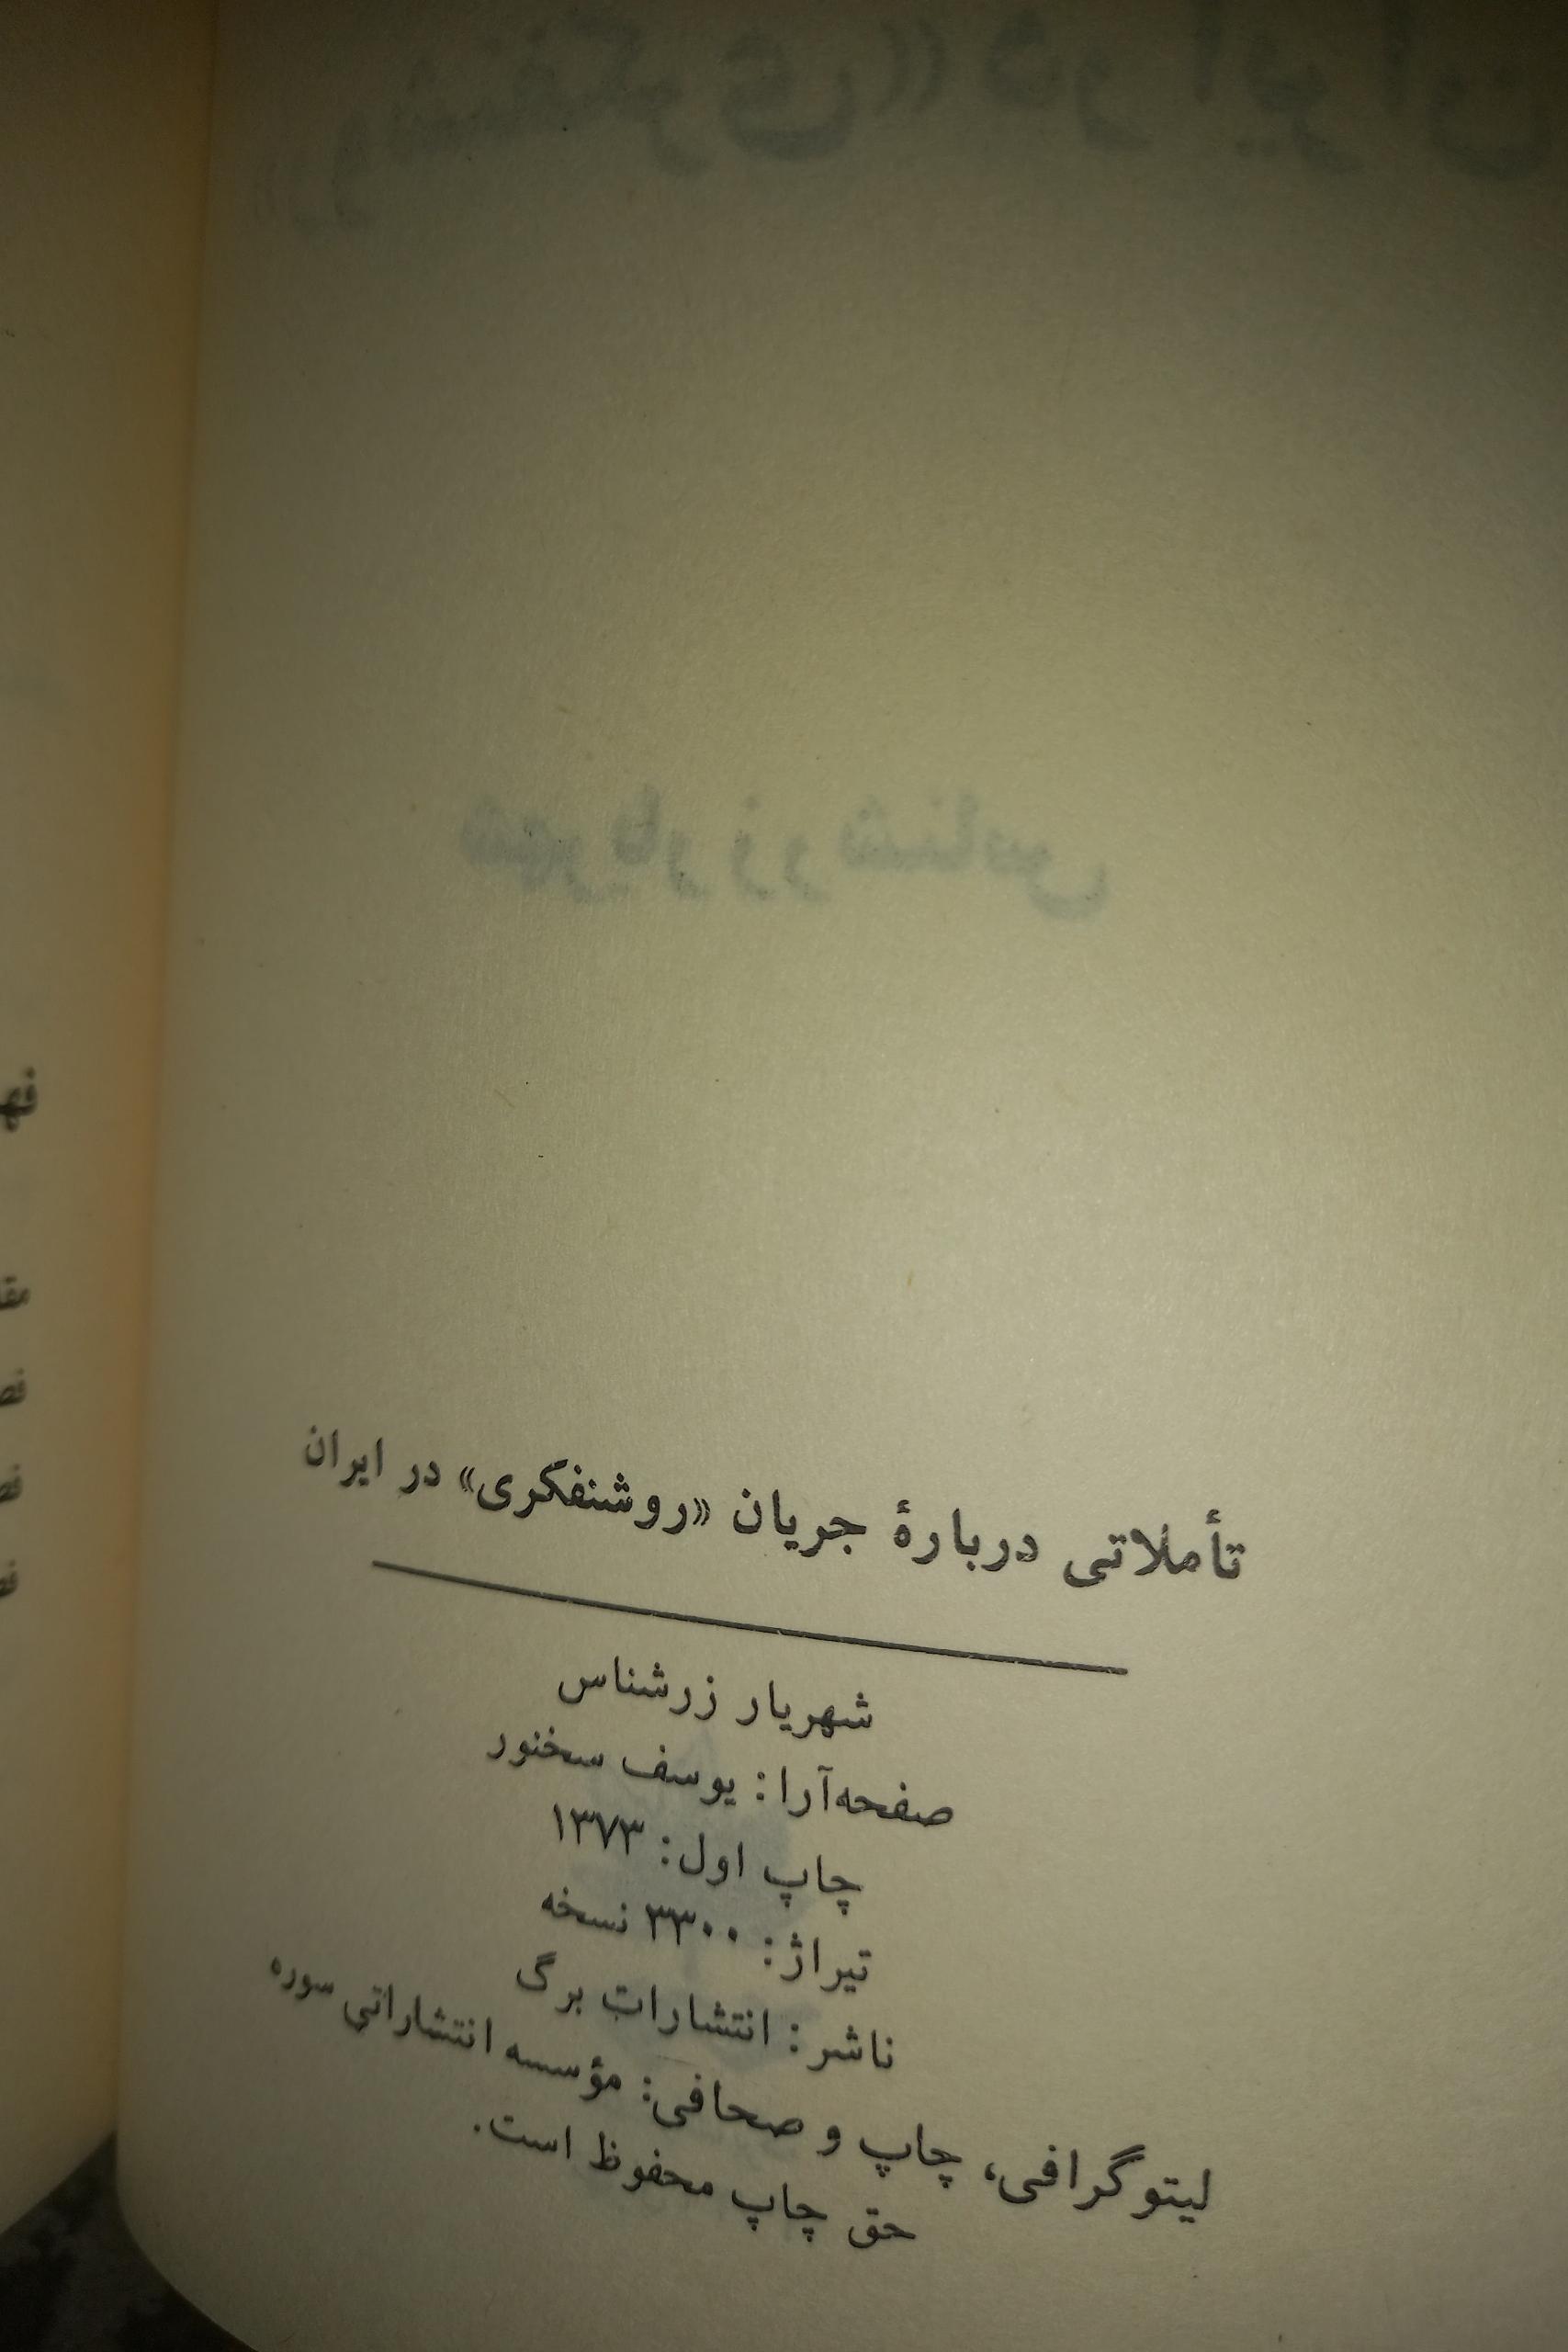 تأملاتی دربارهٔ جریان «روشنفکری» در ایران
شهریار زرشناس
صفحه‌آرا: یوسف سخنور
چاپ اول: ۱۳۷۳
تیراژ: ۳۳۰۰ نسخه
ناشر: انتشارات برگ
لیتوگرافی، چاپ و صحافی: مؤسسه انتشاراتی سوره
حق چاپ محفوظ است.